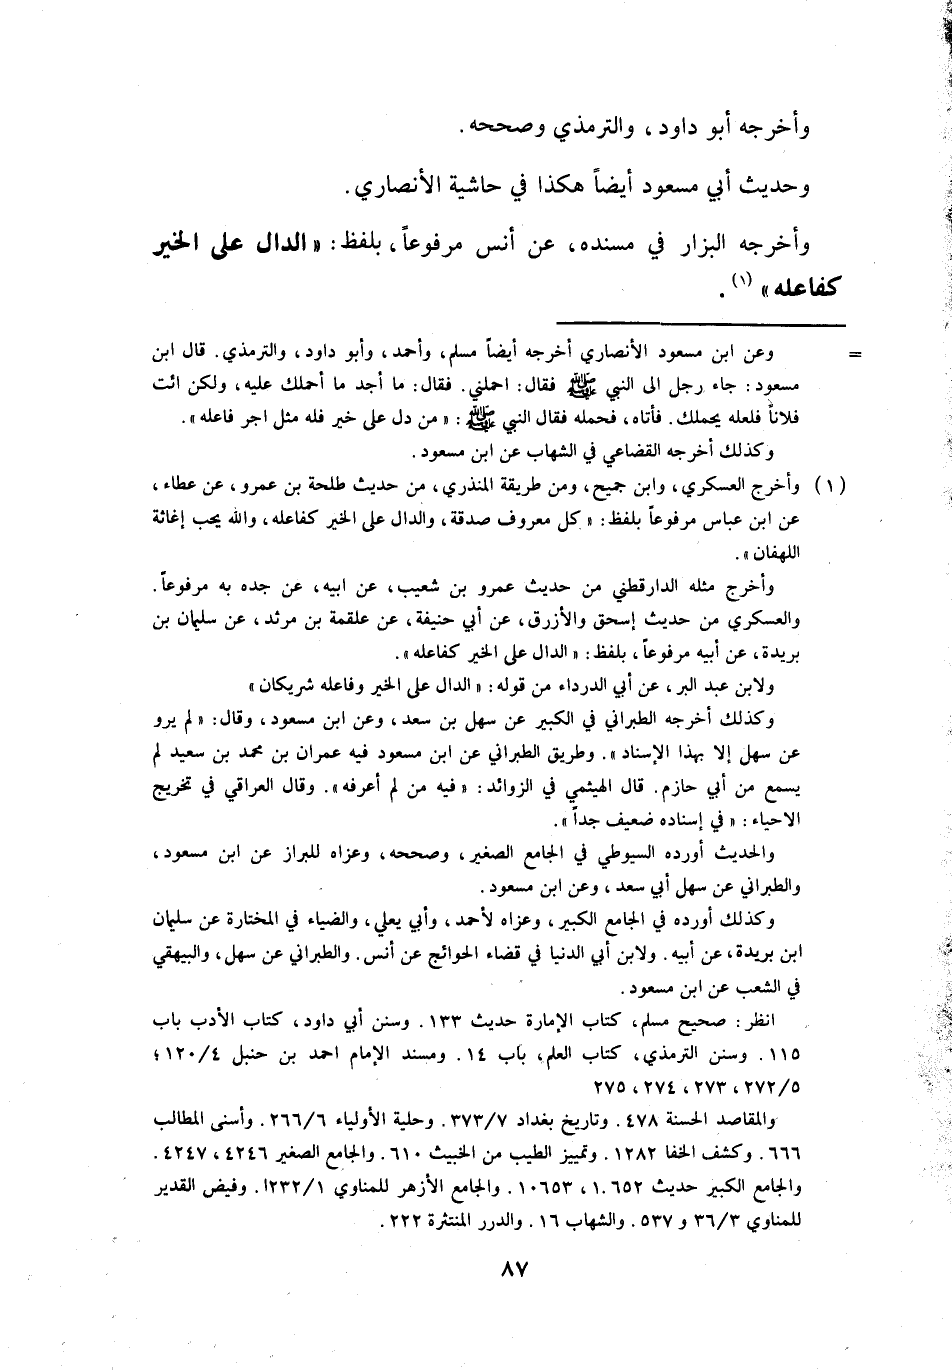 وأخرجه أبو داود، والترمذي وصححه.
وحديث أبي مسعود أيضاً هكذا في حاشية الأنصاري.
وأخرجه البزار في مسنده، عن أنس مرفوعاً، بلفظ: «الدال على الخير
كفاعله» (١).
= وعن ابن مسعود الأنصاري أخرجه أيضاً مسلم، وأحمد، وأبو داود، والترمذي. قال ابن
مسعود: جاء رجل الى النبي ﷺ فقال: احملني. فقال: ما أجد ما أحملك عليه، ولكن ائت
فلاناً فلعله يحملك. فأتاه، فحمله فقال النبي ﷺ: «من دل على خير فله مثل اجر فاعله».
وكذلك أخرجه القضاعي في الشهاب عن ابن مسعود.
(١) وأخرج العسكري، وابن جميح، ومن طريقة المنذري، من حديث طلحة بن عمرو، عن عطاء،
عن ابن عباس مرفوعاً بلفظ: «كل معروف صدقة، والدال على الخير كفاعله، والله يحب إغاثة
اللهفان».
وأخرج مثله الدارقطني من حديث عمرو بن شعيب، عن ابيه، عن جده به مرفوعاً.
والعسكري من حديث إسحق والأزرق، عن أبي حنيفة، عن علقمة بن مرثد، عن سليمان بن
بريدة، عن أبيه مرفوعاً، بلفظ: «الدال على الخير كفاعله».
ولابن عبد البر، عن أبي الدرداء من قوله: «الدال على الخير وفاعله شريكان»
وكذلك أخرجه الطبراني في الكبير عن سهل بن سعد، وعن ابن مسعود، وقال: «لم يرو
عن سهل إلا بهذا الإسناد». وطريق الطبراني عن ابن مسعود فيه عمران بن محمد بن سعيد لم
يسمع من أبي حازم. قال الهيثمي في الزوائد: «فيه من لم أعرفه». وقال العراقي في تخريج
الاحياء: «في إسناده ضعيف جداً».
والحديث أورده السيوطي في الجامع الصغير، وصححه، وعزاه للبراز عن ابن مسعود،
والطبراني عن سهل أبي سعد، وعن ابن مسعود.
وكذلك أورده في الجامع الكبير، وعزاه لأحمد، وأبي يعلي، والضياء في المختارة عن سليمان
ابن بريدة، عن أبيه. ولابن أبي الدنيا في قضاء الحوائج عن أنس. والطبراني عن سهل، والبيهقي
في الشعب عن ابن مسعود.
انظر: صحيح مسلم، كتاب الإمارة حديث ١٣٣. وسنن أبي داود، كتاب الأدب باب
١١٥. وسنن الترمذي، كتاب العلم، باب ١٤. ومسند الإمام احمد بن حنبل ١٢٠/٤؛
٢٧٢/٥، ٢٧٣، ٢٧٤، ٢٧٥
والمقاصد الحسنة ٤٧٨. وتاريخ بغداد ٣٧٣/٧. وحلية الأولياء ٢٦٦/٦. وأسنى المطالب
٦٦٦. وكشف الخفا ١٢٨٢. وتمييز الطيب من الخبيث ٦١٠. والجامع الصغير ٤٢٤٦، ٤٢٤٧.
والجامع الكبير حديث ١.٦٥٢، ١٠٦٥٣. والجامع الأزهر للمناوي ٢٣٢/١ا. وفيض القدير
للمناوي ٣٦/٣ و ٥٣٧. والشهاب ١٦. والدرر المنتثرة ٢٢٢.
٨٧